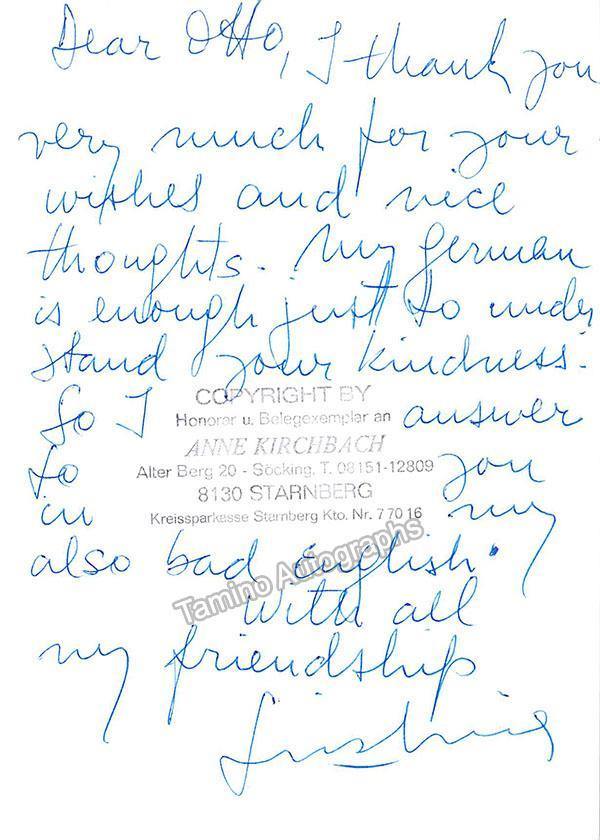 Dear Otto, I thank you
very much for your
wishes and nice
thoughts. My german
is enough just to under
stand your kindness.
So I answer
COPYRIGHT BY
Honorar u. Belegexemplar an
ANNE KIRCHBACH
Alter Berg 20 - Söcking, T. 08151-12809
8130 STARNBERG
Kreissparkasse Starnberg Kto. Nr. 77016
to you
in my
also bad english.
Tamino Autographs
With all
my friendship